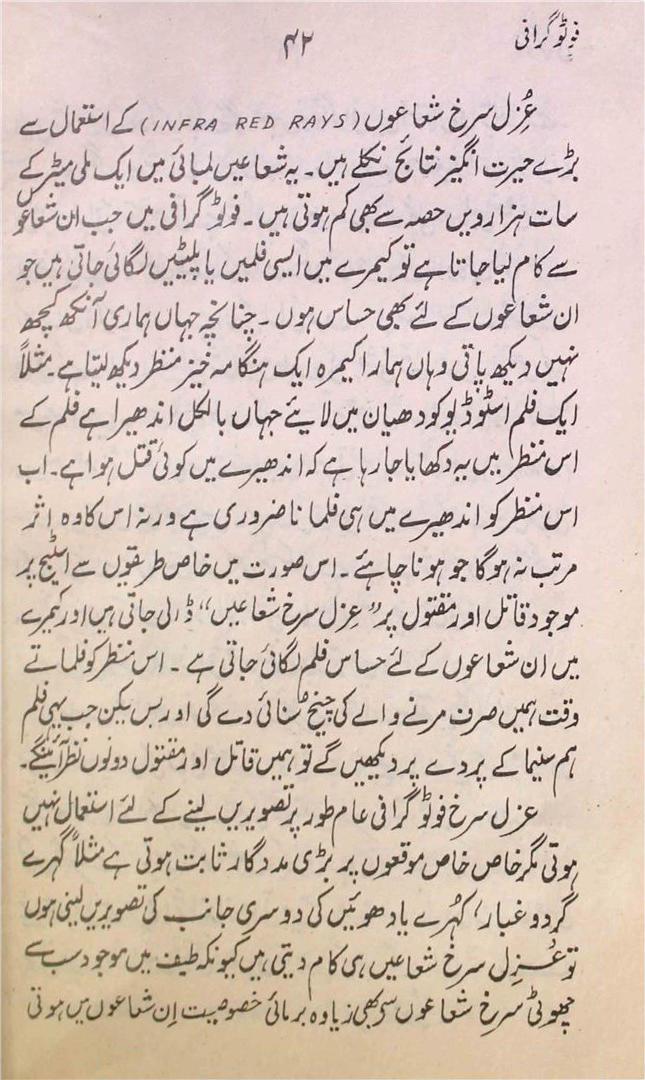 فوٹوگرافی
۴۲
عُزل سرخ شعاعوں (INFRA RED RAYS) کے استعمال سے
بڑے حیرت انگیز نتائج نکلے ہیں۔ یہ شعاعیں لمبائی میں ایک ملی میٹر کے
سات ہزارویں حصہ سے بھی کم ہوتی ہیں۔ فوٹو گرافی میں جب ان شعاعوں
سے کام لیا جاتا ہے تو کیمرے میں ایسی فلمیں یا پلیٹیں لگائی جاتی ہیں جو
ان شعاعوں کے لئے بھی حساس ہوں۔ چنانچہ جہاں ہماری آنکھ کچھ
نہیں دیکھ پاتی وہاں ہمارا کیمرہ ایک ہنگامہ خیز منظر دیکھ لیتا ہے۔ مثلاً
ایک فلم اسٹوڈیو کو دھیان میں لایئے جہاں بالکل اندھیرا ہے فلم کے
اس منظر میں یہ دکھایا جا رہا ہے کہ اندھیرے میں کوئی قتل ہوا ہے۔ اب
اس منظر کو اندھیرے میں ہی فلمانا ضروری ہے ورنہ اس کا وہ اثر
مرتب نہ ہوگا جو ہونا چاہئے۔ اس صورت میں خاص طریقوں سے اسٹیج پر
موجود قاتل اور مقتول پر "عزل سرخ شعاعیں" ڈالی جاتی ہیں اور کیمرے
میں ان شعاعوں کے لئے حساس فلم لگائی جاتی ہے۔ اس منظر کو فلماتے
وقت ہمیں صرف مرنے والے کی چیخ سنائی دے گی اور بس لیکن جب یہی فلم
ہم سنیما کے پردے پر دیکھیں گے تو ہمیں قاتل اور مقتول دونوں نظر آئینگے۔
عزل سرخ فوٹو گرافی عام طور پر تصویریں لینے کے لئے استعمال نہیں
ہوتی مگر خاص خاص موقعوں پر بڑی مددگار ثابت ہوتی ہے مثلاً گہرے
گرد و غبار، کہُرے یا دھوئیں کی دوسری جانب کی تصویریں لینی ہوں
تو عُزل سرخ شعاعیں ہی کام دیتی ہیں کیونکہ طیف میں موجود سب سے
چھوٹی سرخ شعاعوں سے بھی زیادہ برمائی خصوصیت اِن شعاعوں میں ہوتی